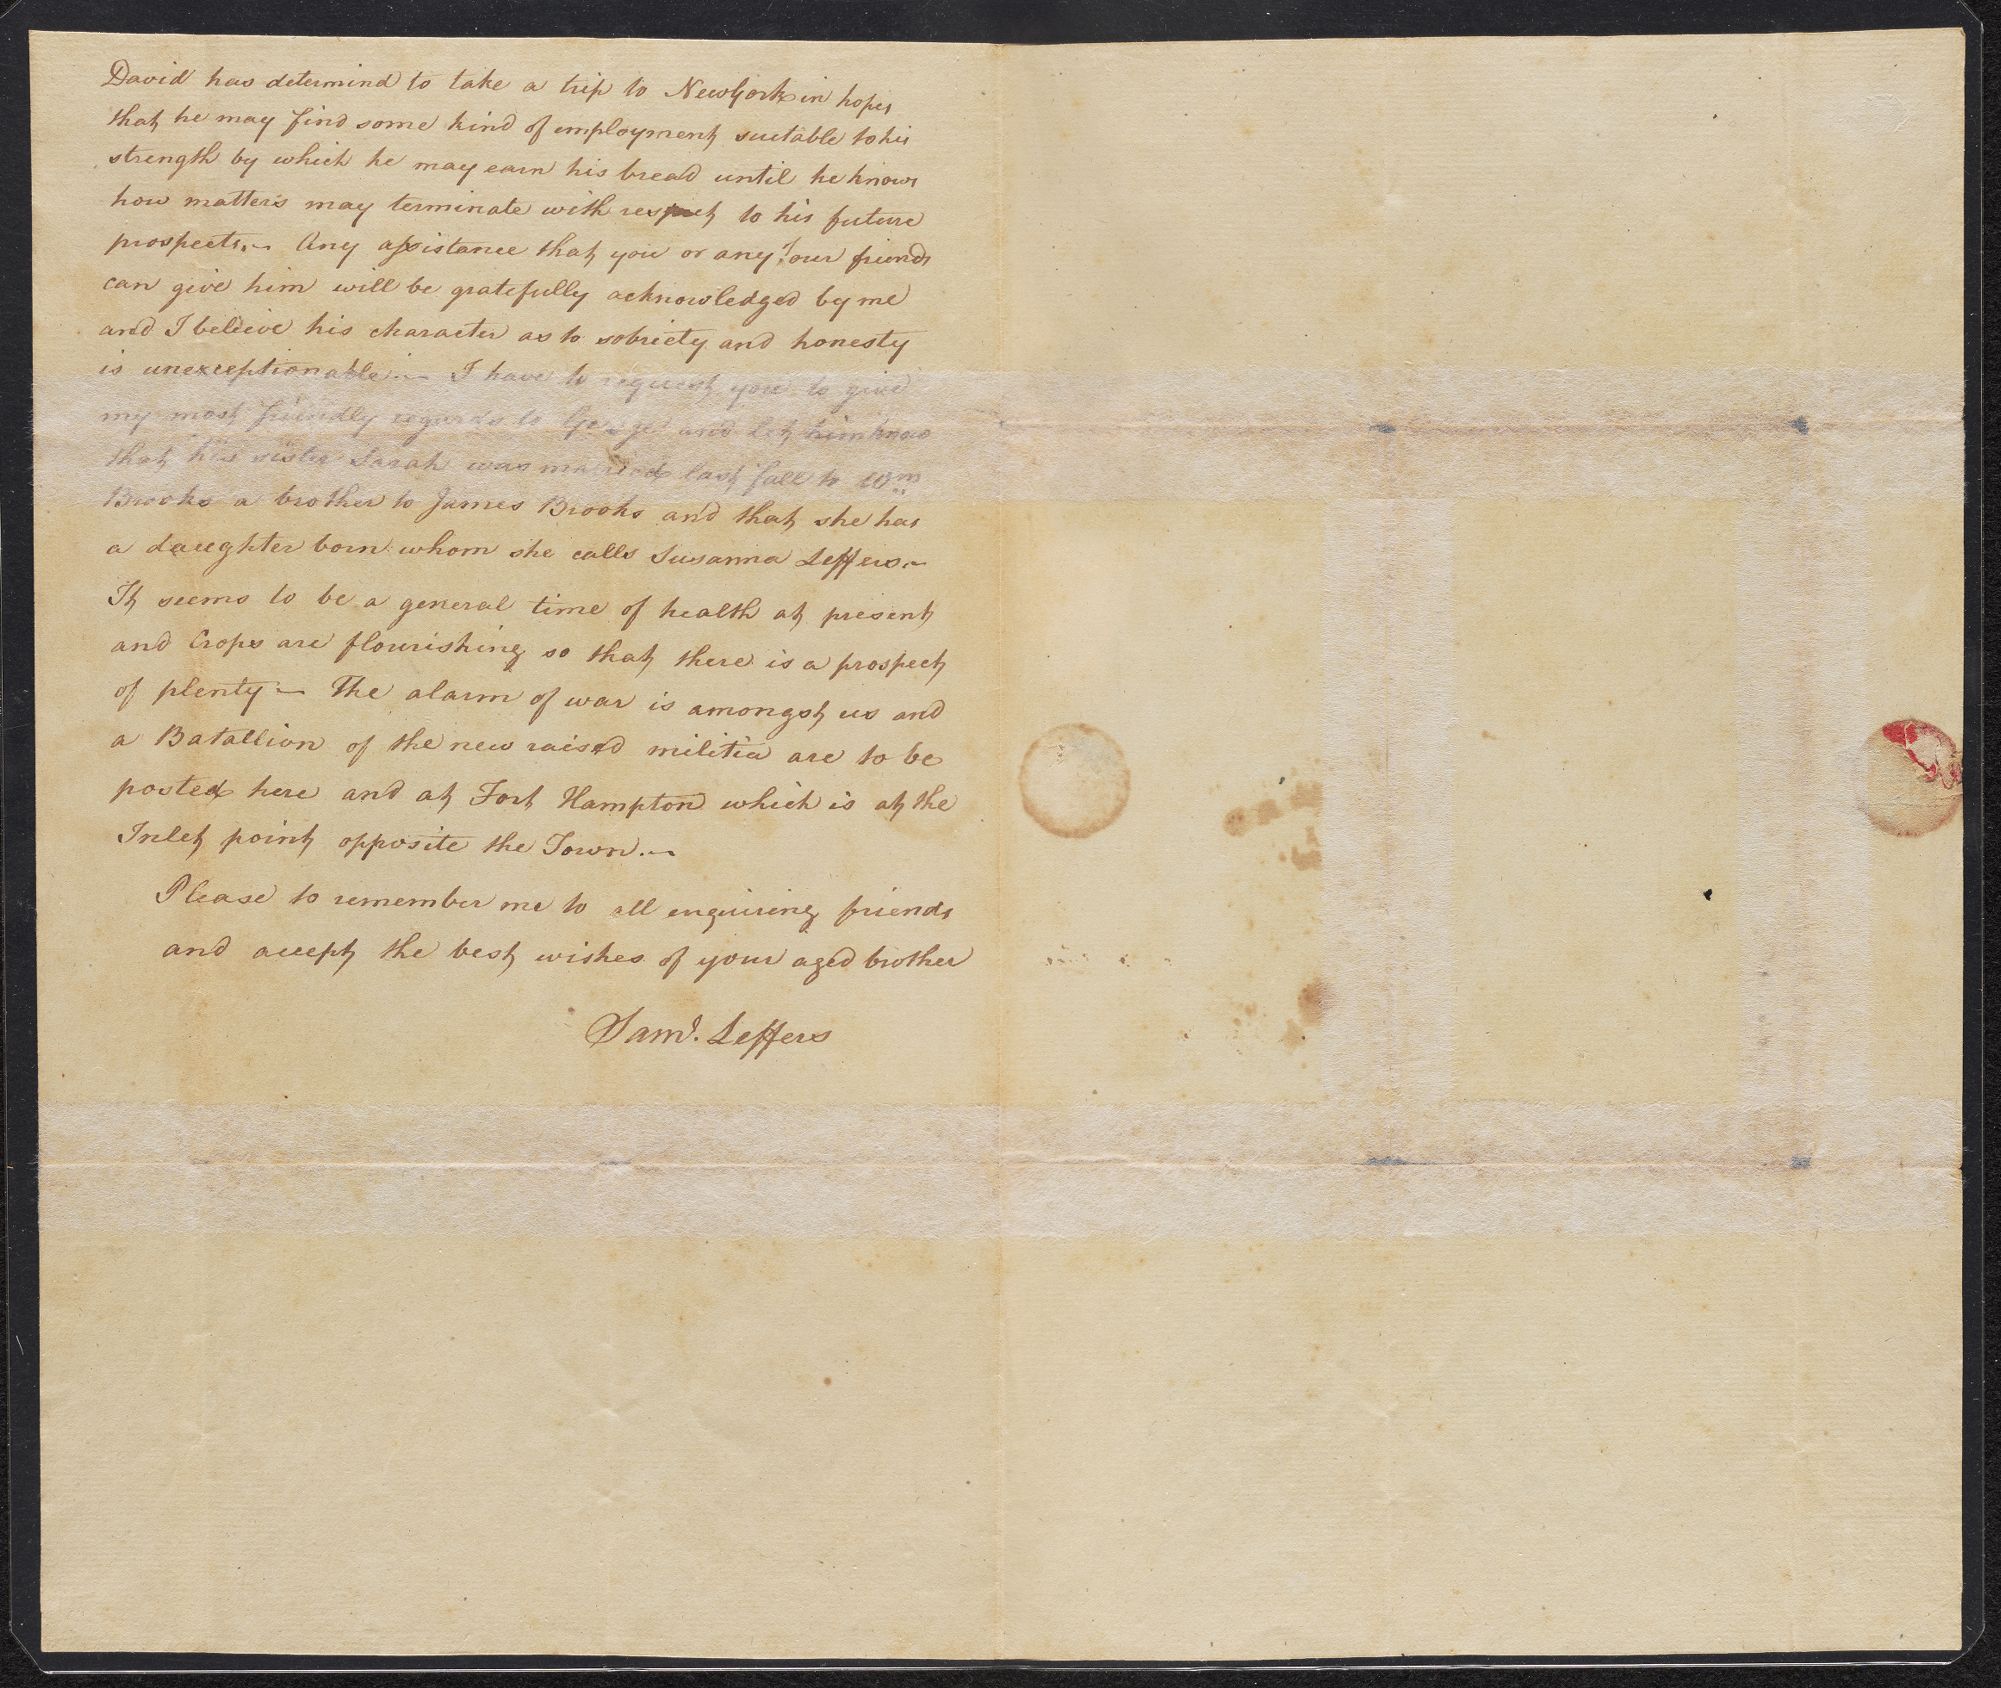 David has determind to take a trip to NewYork in hopes
that he may find some kind of employment suitable to his
strength by which he may earn his bread until he knows
how matters may terminate with respect to his future
prospects.~ Any assistance that you or any of our friends
can give him will be gratefully acknowledged by me
and I beleive his character as to sobriety and honesty
is unexceptionable.~ I have to request you to give
my most friendly regards to George and let him know
that his sister Sarah was married last fall to Wm
Brooks a brother to James Brooks and that she has
a daughter born whom she calls Susanna Leffers.~
It seems to be a general time of health at present
and Crops are flourishing so that there is a prospect
of plenty~ The alarm of war is amongst us and
a Batallion of the new raised militia are to be
posted here and at Fort Hampton which is at the
Inlet point opposite the Town.~
Please to remember me to all enquiring friends
and accept the best wishes of your aged brother
Saml. Leffers